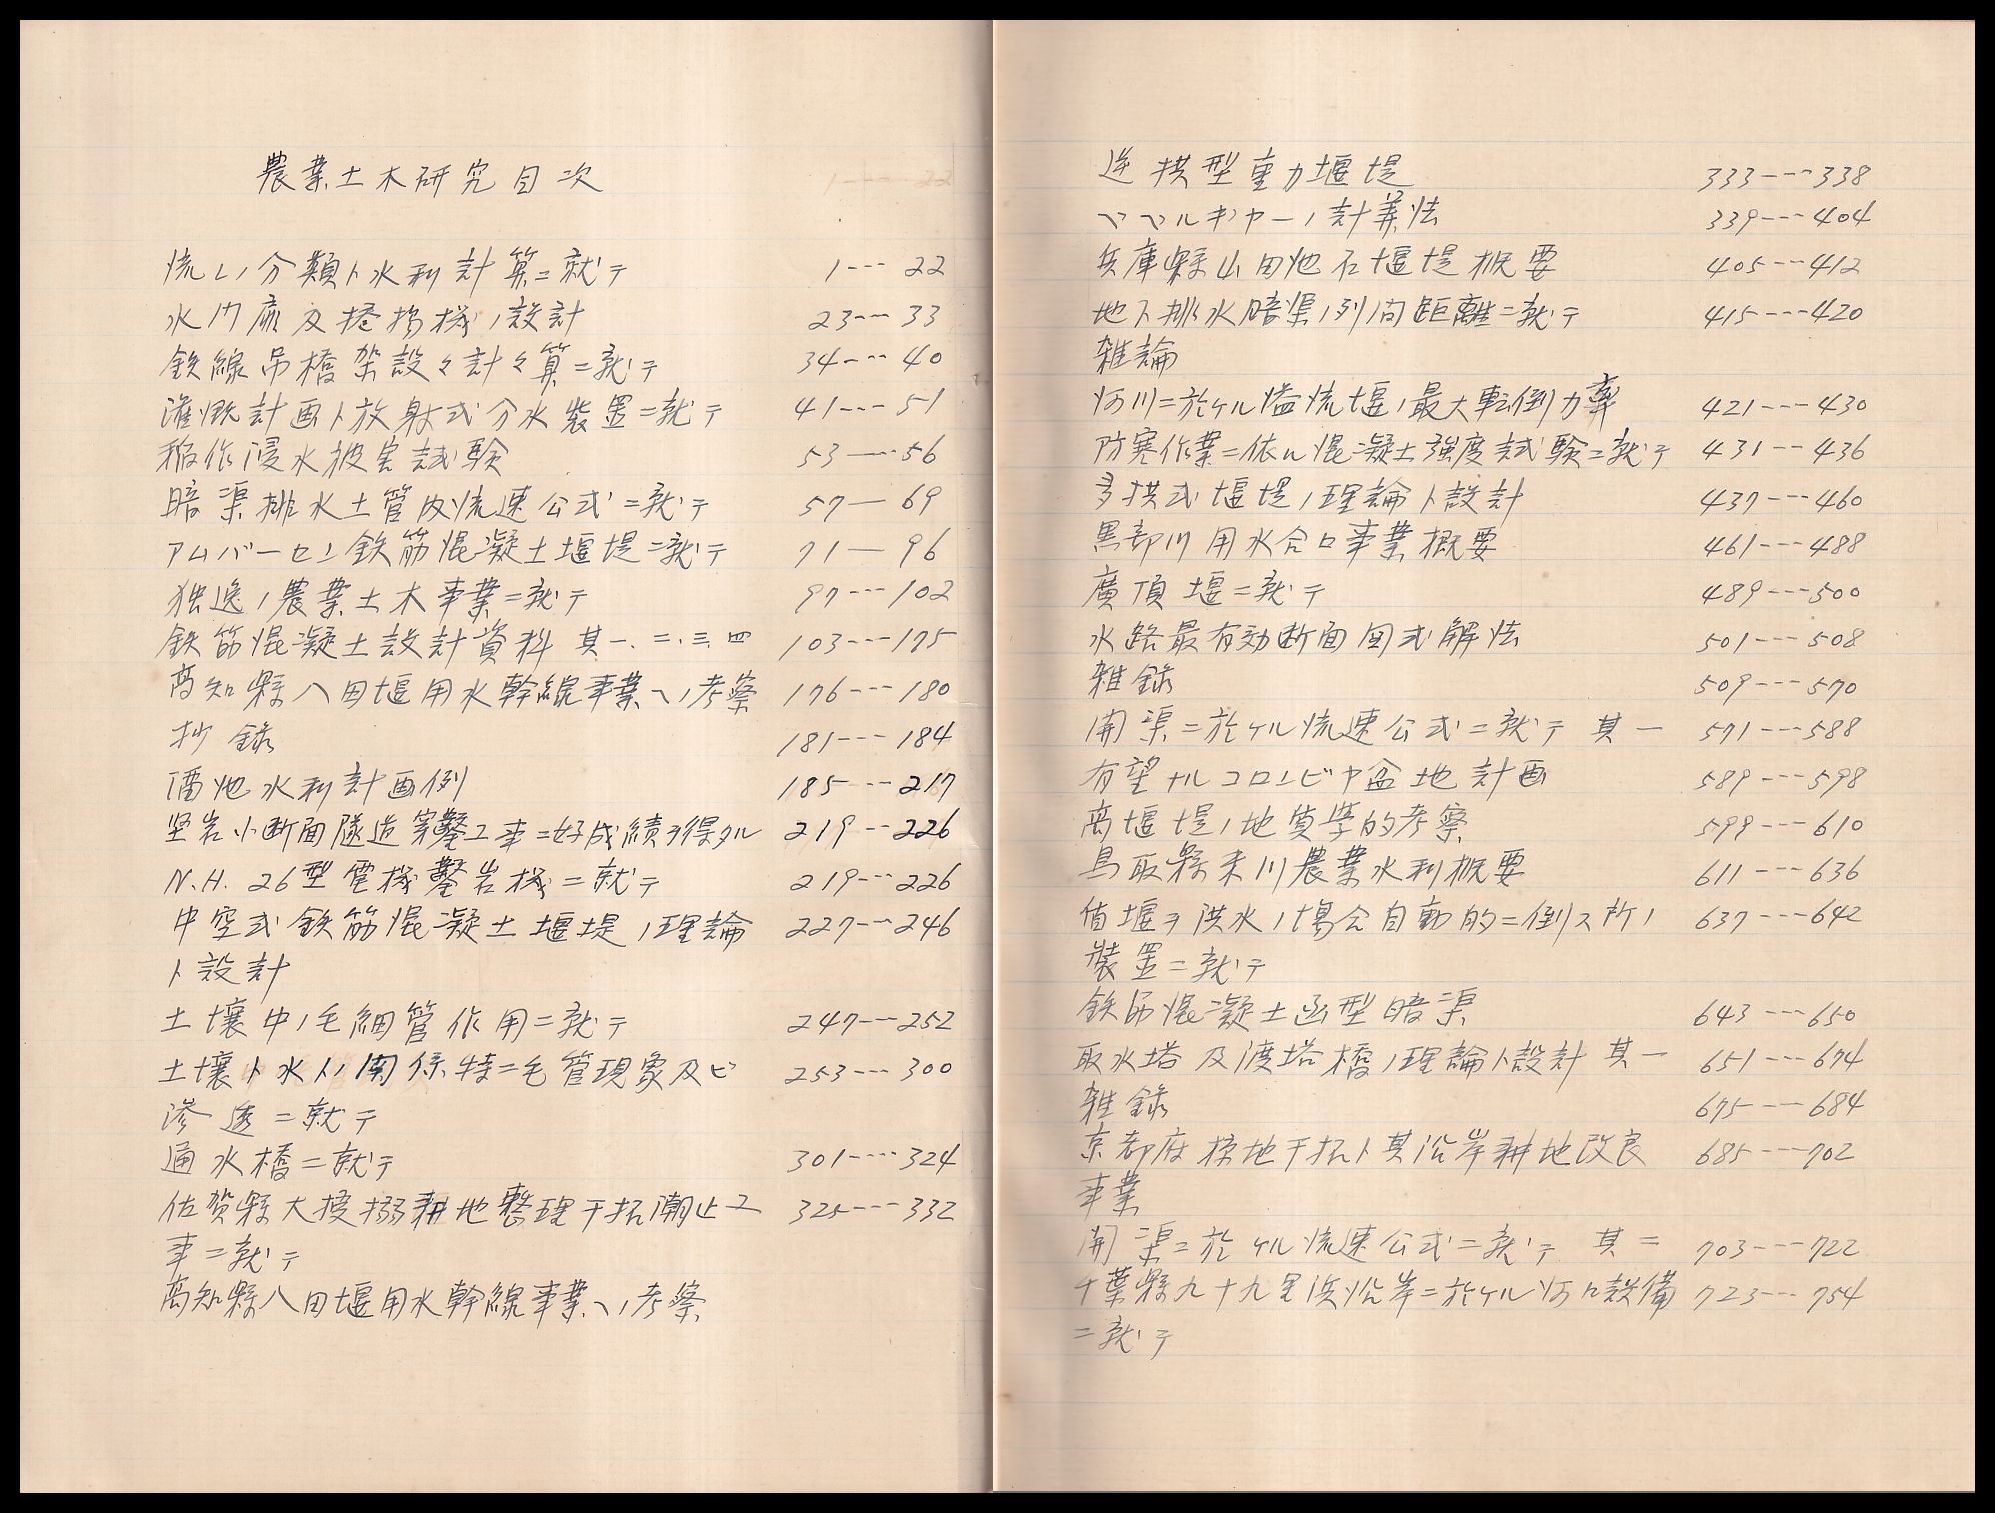 農業土木研究目次
流レノ分類ト水利計算ニ就テ 1---22
水門扉及捲揚機ノ設計 23---33
鉄線吊橋架設々計々算ニ就テ 34---40
灌漑計画ト放射式分水装置ニ就テ 41---51
稲作浸水被害試験 53---56
暗渠排水土管内流速公式ニ就テ 57—69
アムバーセン鉄筋混凝土堰堤ニ就テ 71—96
独逸ノ農業土木事業ニ就テ 97---102
鉄筋混凝土設計資料 其一.二.三.四 103---175
高知縣八田堰用水幹線事業ヘノ考察 176---180
抄録 181---184
溜池水利計画例 185---217
堅岩小断面隧道穿鑿工事ニ好成績ヲ得タル 219---226
N.H. 26型電機鑿岩機ニ就テ 219---226
中空式鉄筋混凝土堰堤ノ理論 227---246
ト設計
土壌中ノ毛細管作用ニ就テ 247---252
土壌ト水トノ関係特ニ毛管現象及ビ 253---300
滲透ニ就テ
通水橋ニ就テ 301----324
佐賀縣大授搦耕地整理干拓潮止工 325---332
事ニ就テ
高知縣八田堰用水幹線事業ヘノ考察
逆拱型重力堰堤 333---338
ベベルギヤーノ計算法 339---404
兵庫縣山田池石堰堤概要 405---412
地下排水暗渠ノ列間距離ニ就テ 415---420
雑論
河川ニ於ケル溢流堰ノ最大転倒力率 421---430
防寒作業ニ依ル混凝土強度試験ニ就テ 431---436
多拱式堰堤ノ理論ト設計 437---460
黒部川用水合口事業概要 461---488
廣頂堰ニ就テ 489---500
水路最有効断面図式解法 501---508
雑録 509---570
開渠ニ於ケル流速公式ニ就テ 其一 571---588
有望ナルコロンビヤ盆地計画 589---598
高堰堤ノ地質学的考察 599---610
鳥取縣末川農業水利概要 611---636
堰ヲ洪水ノ場合自動的ニ倒ス所ノ 637---642
装置ニ就テ
鉄筋混凝土函型暗渠 643---650
取水塔及渡塔橋ノ理論ト設計 其一 651---674
雑録 675---684
京都府椋地干拓ト其沿岸耕地改良 685---702
事業
開渠ニ於ケル流速公式ニ就テ 其二 703---722
千葉縣九十九里浜沿岸ニ於ケル河口設備 723---754
ニ就テ